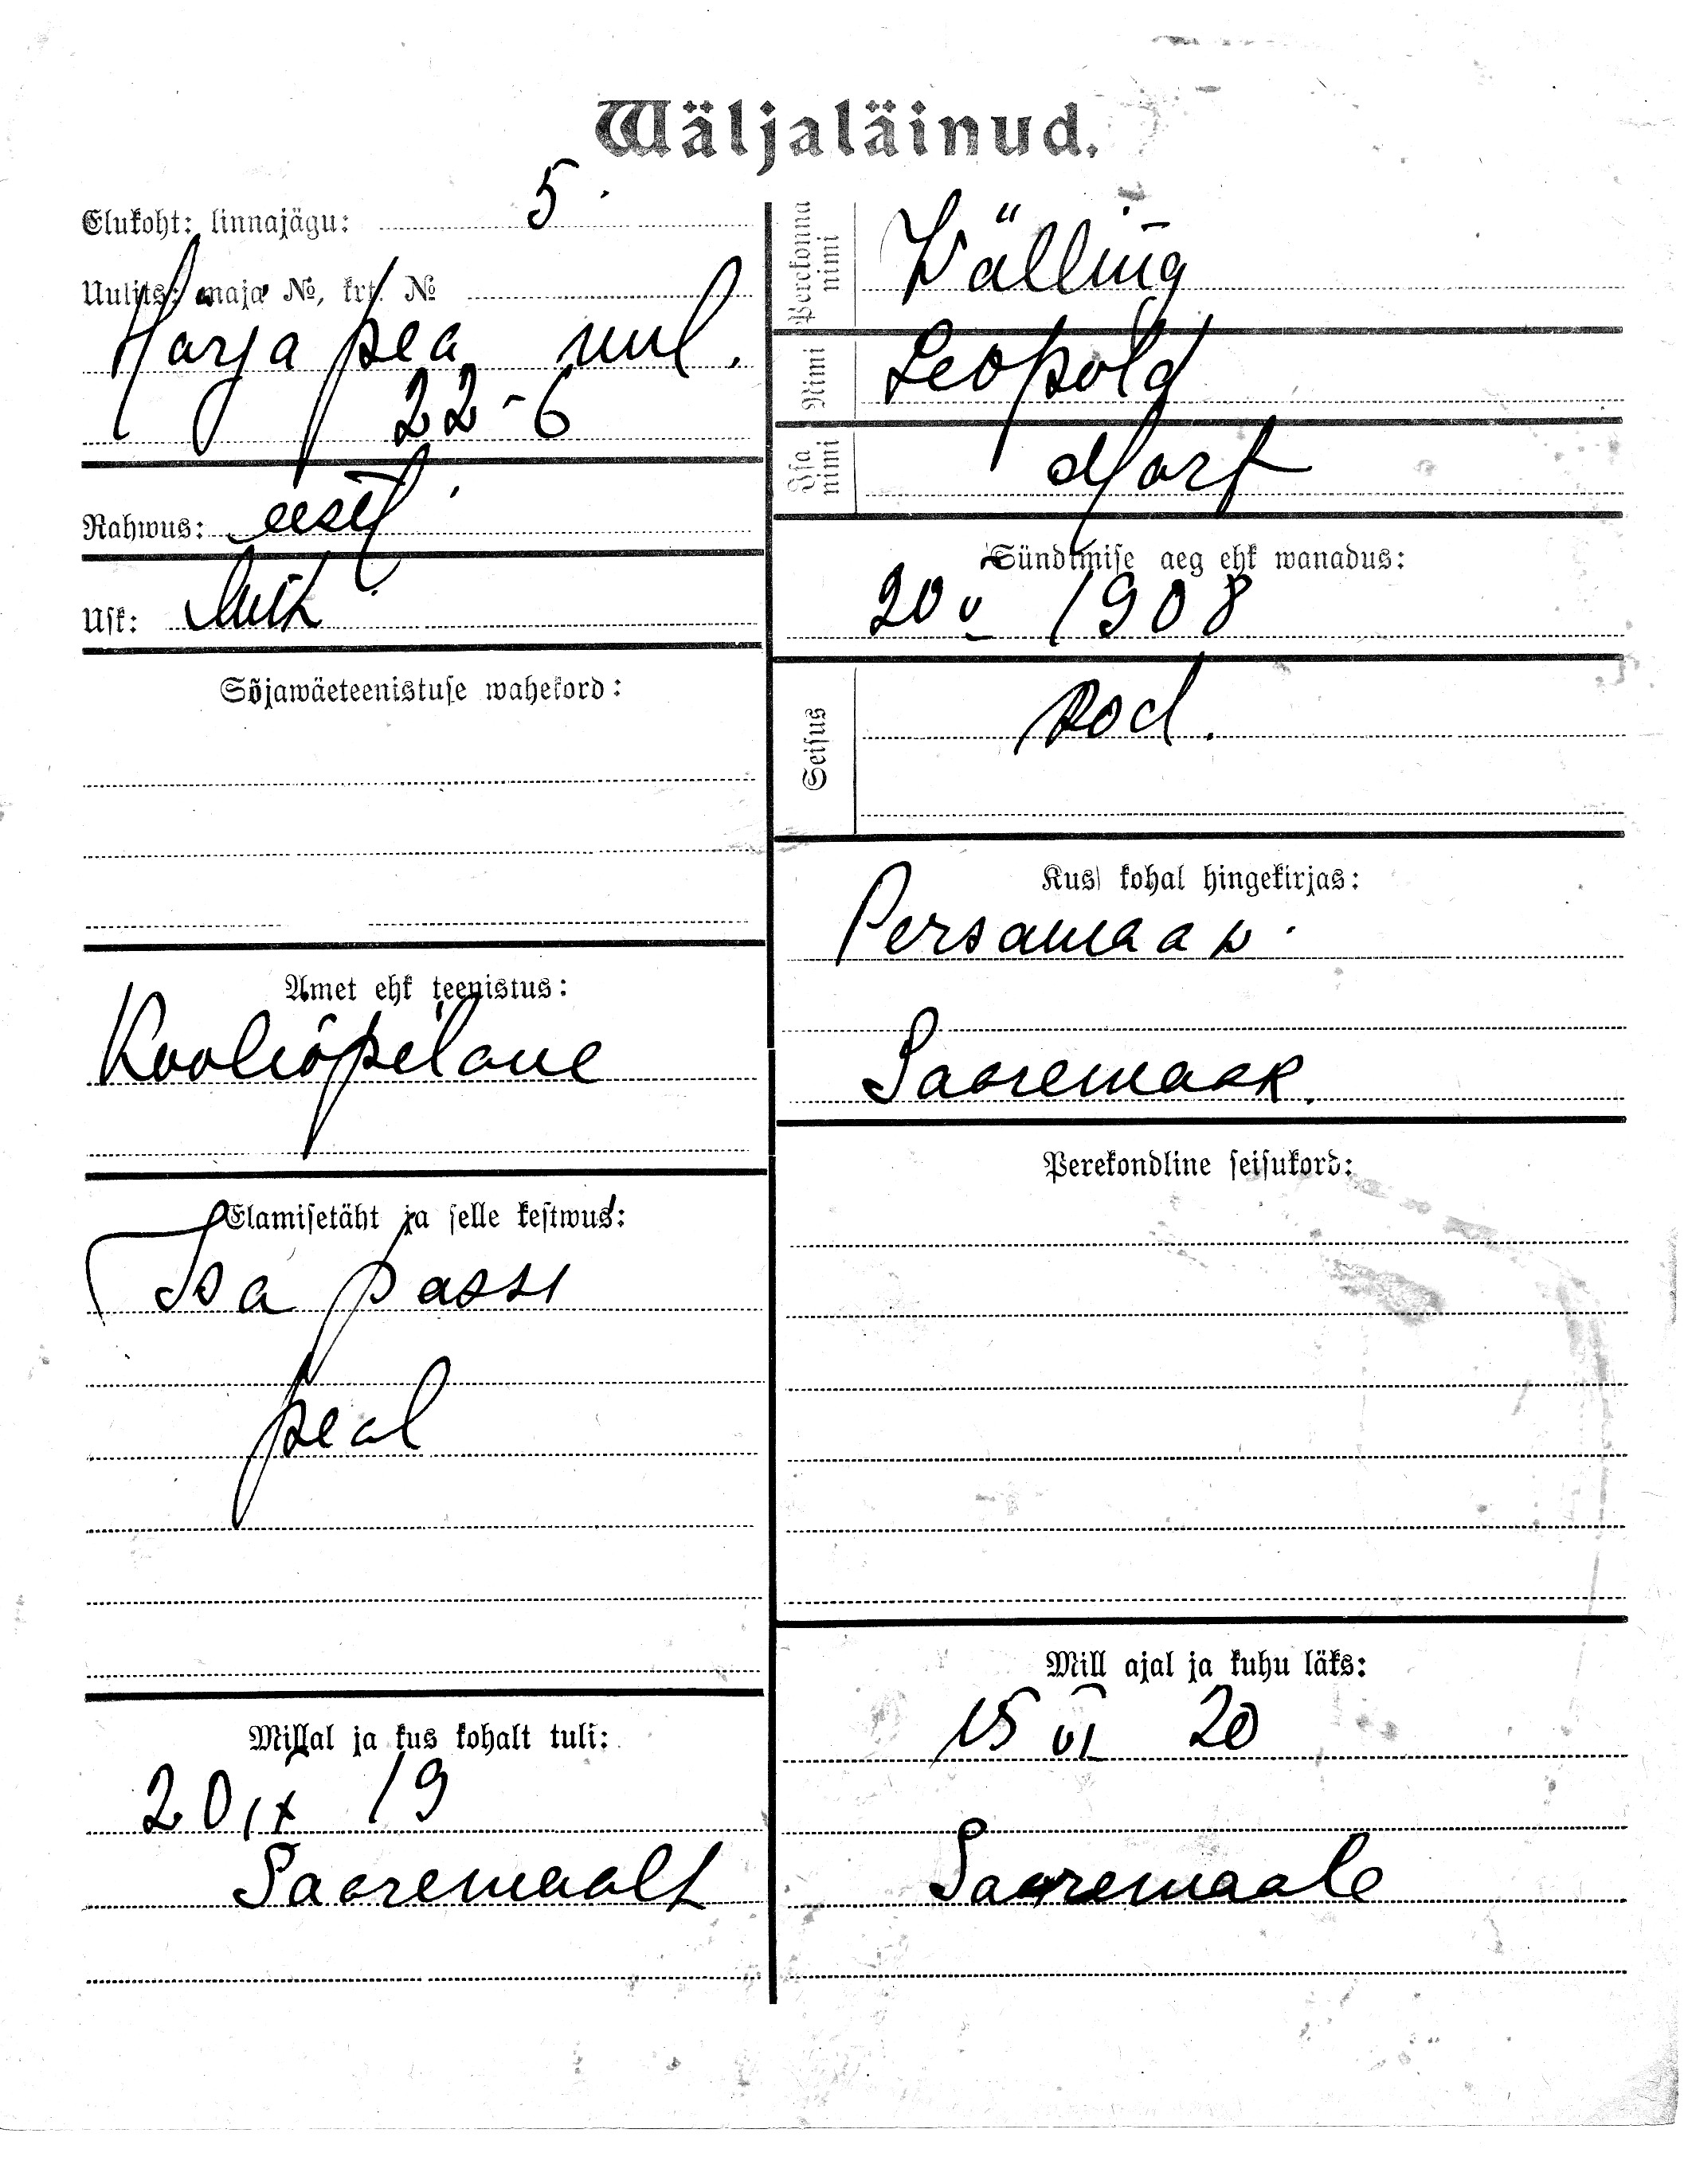 Wäljaläinud.
Elukoht: linnajägu: 5.
Uulits: maja №, krt. №
Harja pea uul.
22-6
Rahwus: eestl.
Usk: Luth.
Sõjawäeteenistuse wahekord:
Amet ehk teenistus:
Kooliõpilane
Elamisetäht ja selle kestwus:
Isa passi
peal
Millal ja kus kohalt tuli:
20 IX 19
Saaremaalt
Perekonna nimi Wälling
Nimi Leopold
Isa nimi
Sündimise aeg ehk wanadus:
20 V 1908
Seisus kod.
Kus kohal hingekirjas:
Persamaa w.
Saaremaak.
Perekondline seisukord:
Mill ajal ja kuhu läks:
15 VI 20
Saaremaale